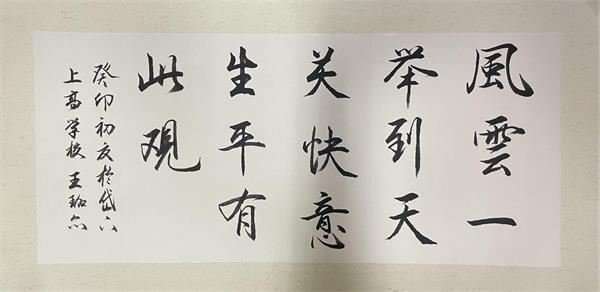 風雲一
举到天
关快意
生平有
此观
癸卯初夏於岱下
上高学校王